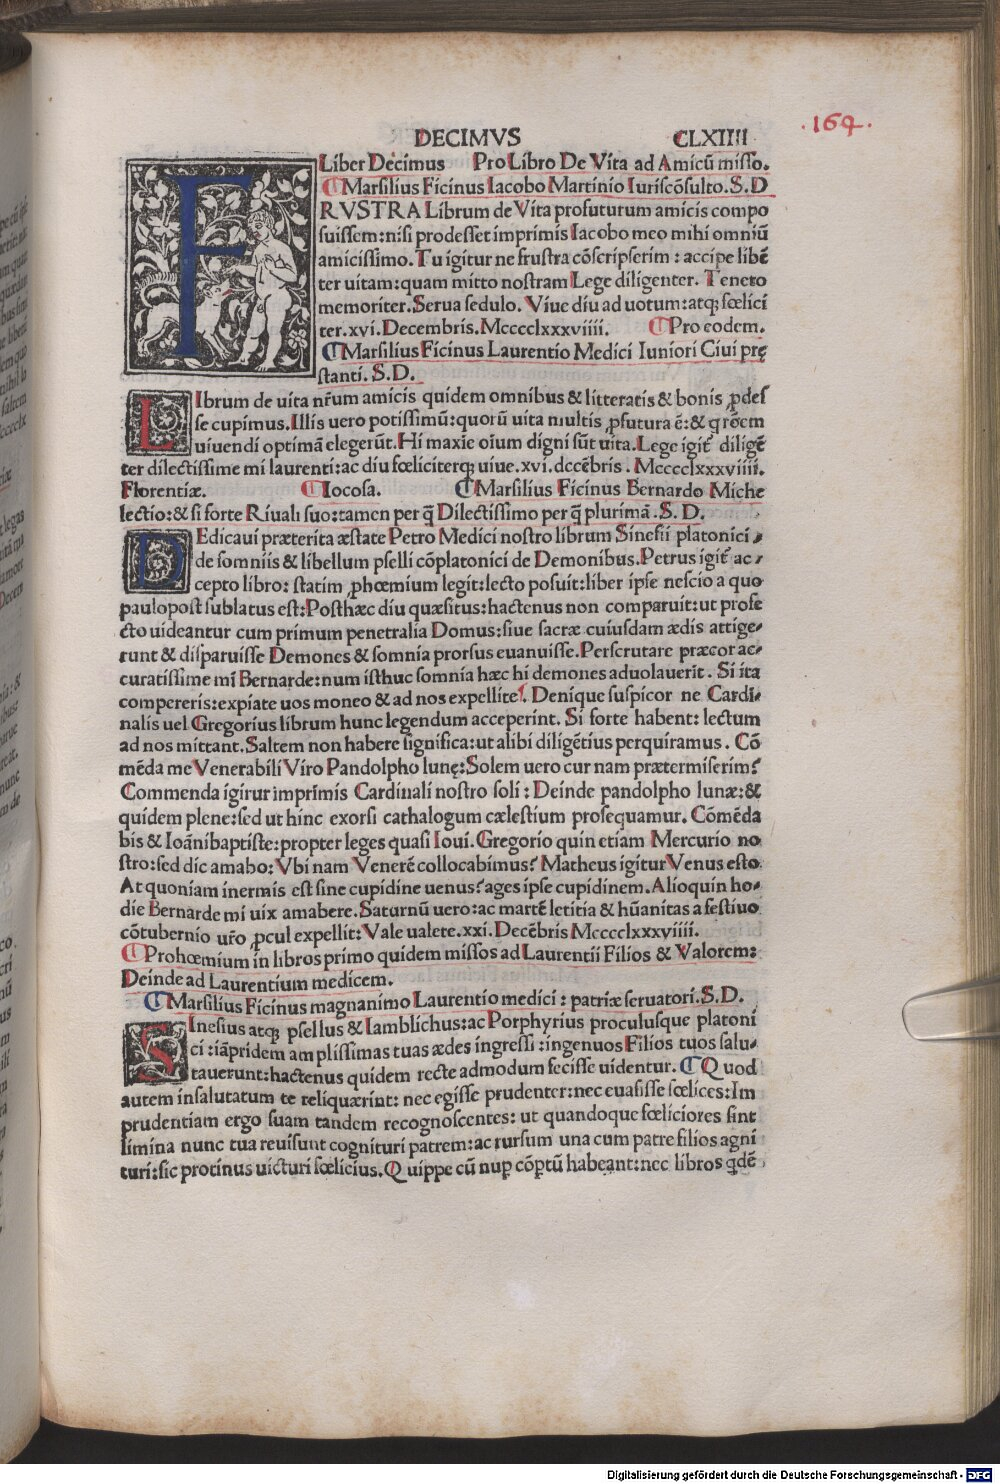 DECIMVS CLXIIII
.164.
Liber Decimus Pro Libro De Vita ad Amicũ misso.
Marsilius Ficinus Iacobo Martinio Iuriscõsulto.S.D
FRVSTRA Librum de Vita profuturum amicis compo
suissem:nisi prodesset imprimis Iacobo meo mihi omniũ
amicissimo.Tu igitur ne frustra cõscripserim : accipe libẽ
ter uitam:quam mitto nostram Lege diligenter. Teneto
memoriter.Serua sedulo. Viue diu ad uotum:atq; fœlici
ter.xvi.Decembris.Mcccclxxxviiii. Pro eodem.
Marsilius Ficinus Laurentio Medici Iuniori Ciui prę
stanti.S.D.
LIbrum de uita nr̃um amicis quidem omnibus & litteratis & bonis ꝓdes
se cupimus.Illis uero potissimũ:quorũ uita multis ꝓfutura ẽ:& q rõem
uiuendi optimã elegerũt.Hi maxie oium digni sũt uita.Lege igit̃ diligẽ
ter dilectissime mi laurenti:ac diu fœliciterq; uiue.xvi.dccẽbris.Mcccclxxxviiii.
Florentiæ. Iocosa. Marsilius Ficinus Bernardo Miche
lectio:& si forte Riuali suo:tamen per q̃ Dilectissimo per q̃ plurimã.S.D.
DEdicaui præterita æstate Petro Medici nostro librum Sinesii platonici
de somniis & libellum pselli cõplatonici de Demonibus.Petrus igit̃ ac-
cepto libro: statim ꝓhœmium legit:lecto posuit:liber ipse nescio a quo
paulopost sublatus est:Posthæc diu quæsitus:hactenus non comparuit:ut profe
cto uideantur cum primum penetralia Domus:siue sacræ cuiusdam ædis attige-
runt & disparuisse Demones & somnia prorsus euanuisse.Perscrutare præcor ac-
curatissime mi Bernarde:num isthuc somnia hæc hi demones aduolauerit. Si ita
compereris:expiate uos moneo & ad nos expellite. Denique suspicor ne Cardi-
nalis uel Gregorius librum hunc legendum acceperint. Si forte habent: lectum
ad nos mittant.Saltem non habere significa:ut alibi diligẽtius perquiramus. Cõ
mẽda me Venerabili Viro Pandolpho lunę:Solem uero cur nam prætermiserim?
Commenda igirur imprimis Cardinali nostro soli: Deinde pandolpho lunæ:&
quidem plene:sed ut hinc exorsi cathalogum cælestium prosequamur. Cõmẽda
bis & Ioãnibaptiste:propter leges quasi Ioui.Gregorio quin etiam Mercurio no
stro:sed dic amabo:Vbi nam Venerẽ collocabimus? Matheus igitur Venus esto
At quoniam inermis est sine cupidine uenus?ages ipse cupidinem.Alioquin ho-
die Bernarde mi uix amabere.Saturnũ uero:ac martẽ letitia & hũanitas a festiuo
cõtubernio ur̃o ꝓcul expellit:Vale ualete.xxi.Decẽbris Mcccclxxxviiii.
Prohœmium in libros primo quidem missos ad Laurentii Filios & Valorem:
Deinde ad Laurentium medicem.
Marsilius Ficinus magnanimo Laurentio medici : patriæ seruatori.S.D.
SInesius atq; psellus & Iamblichus:ac Porphyrius proculusque platoni
ci :iãpridem amplissimas tuas ædes ingressi :ingenuos Filios tuos salu-
tauerunt:hactenus quidem recte admodum fecisse uidentur. Quod
autem insalutatum te reliquærint: nec egisse prudenter:nec euasisse fœlices:Im
prudentiam ergo suam tandem recognoscentes: ut quandoque fœliciores sint
limina nunc tua reuisunt cognituri patrem:ac rursum una cum patre filios agni
turi:sic protinus uicturi fœlicius.Quippe cũ nup cõptũ habeant:nec libros qdẽ
Digitalisierung gefördert durch die Deutsche Forschungsgemeinschaft - DFG